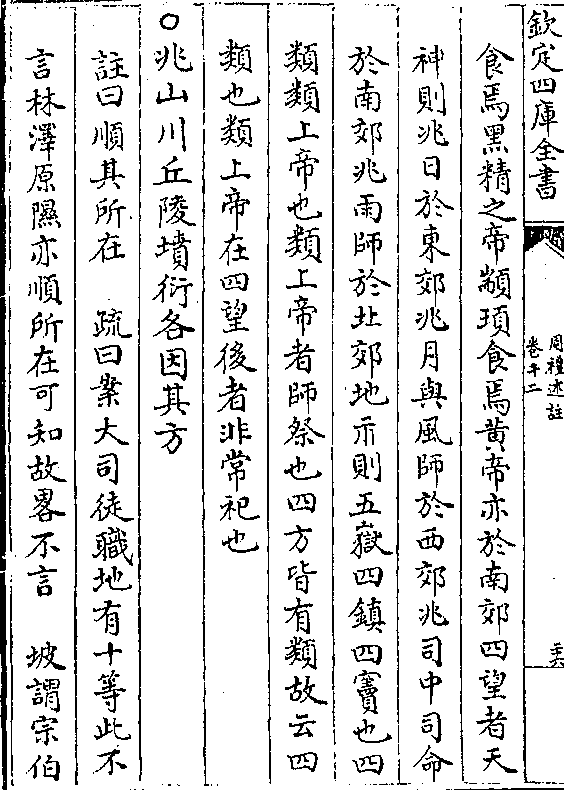 欽定四庫全書
周禮述註
卷十二
食焉黑精之帝顓頊食焉黃帝亦於南郊四望者天
神則兆日於東郊兆月與風師於西郊兆司中司命
於南郊兆雨師於北郊地示則五嶽四鎮四竇也四
類類上帝也類上帝者師祭也四方皆有類故云四
類也類上帝在四望後者非常祀也
○兆山川丘陵墳衍各因其方
註曰順其所在　疏曰案大司徒職地有十等此不
言林澤原隰亦順所在可知故畧不言　坡謂宗伯